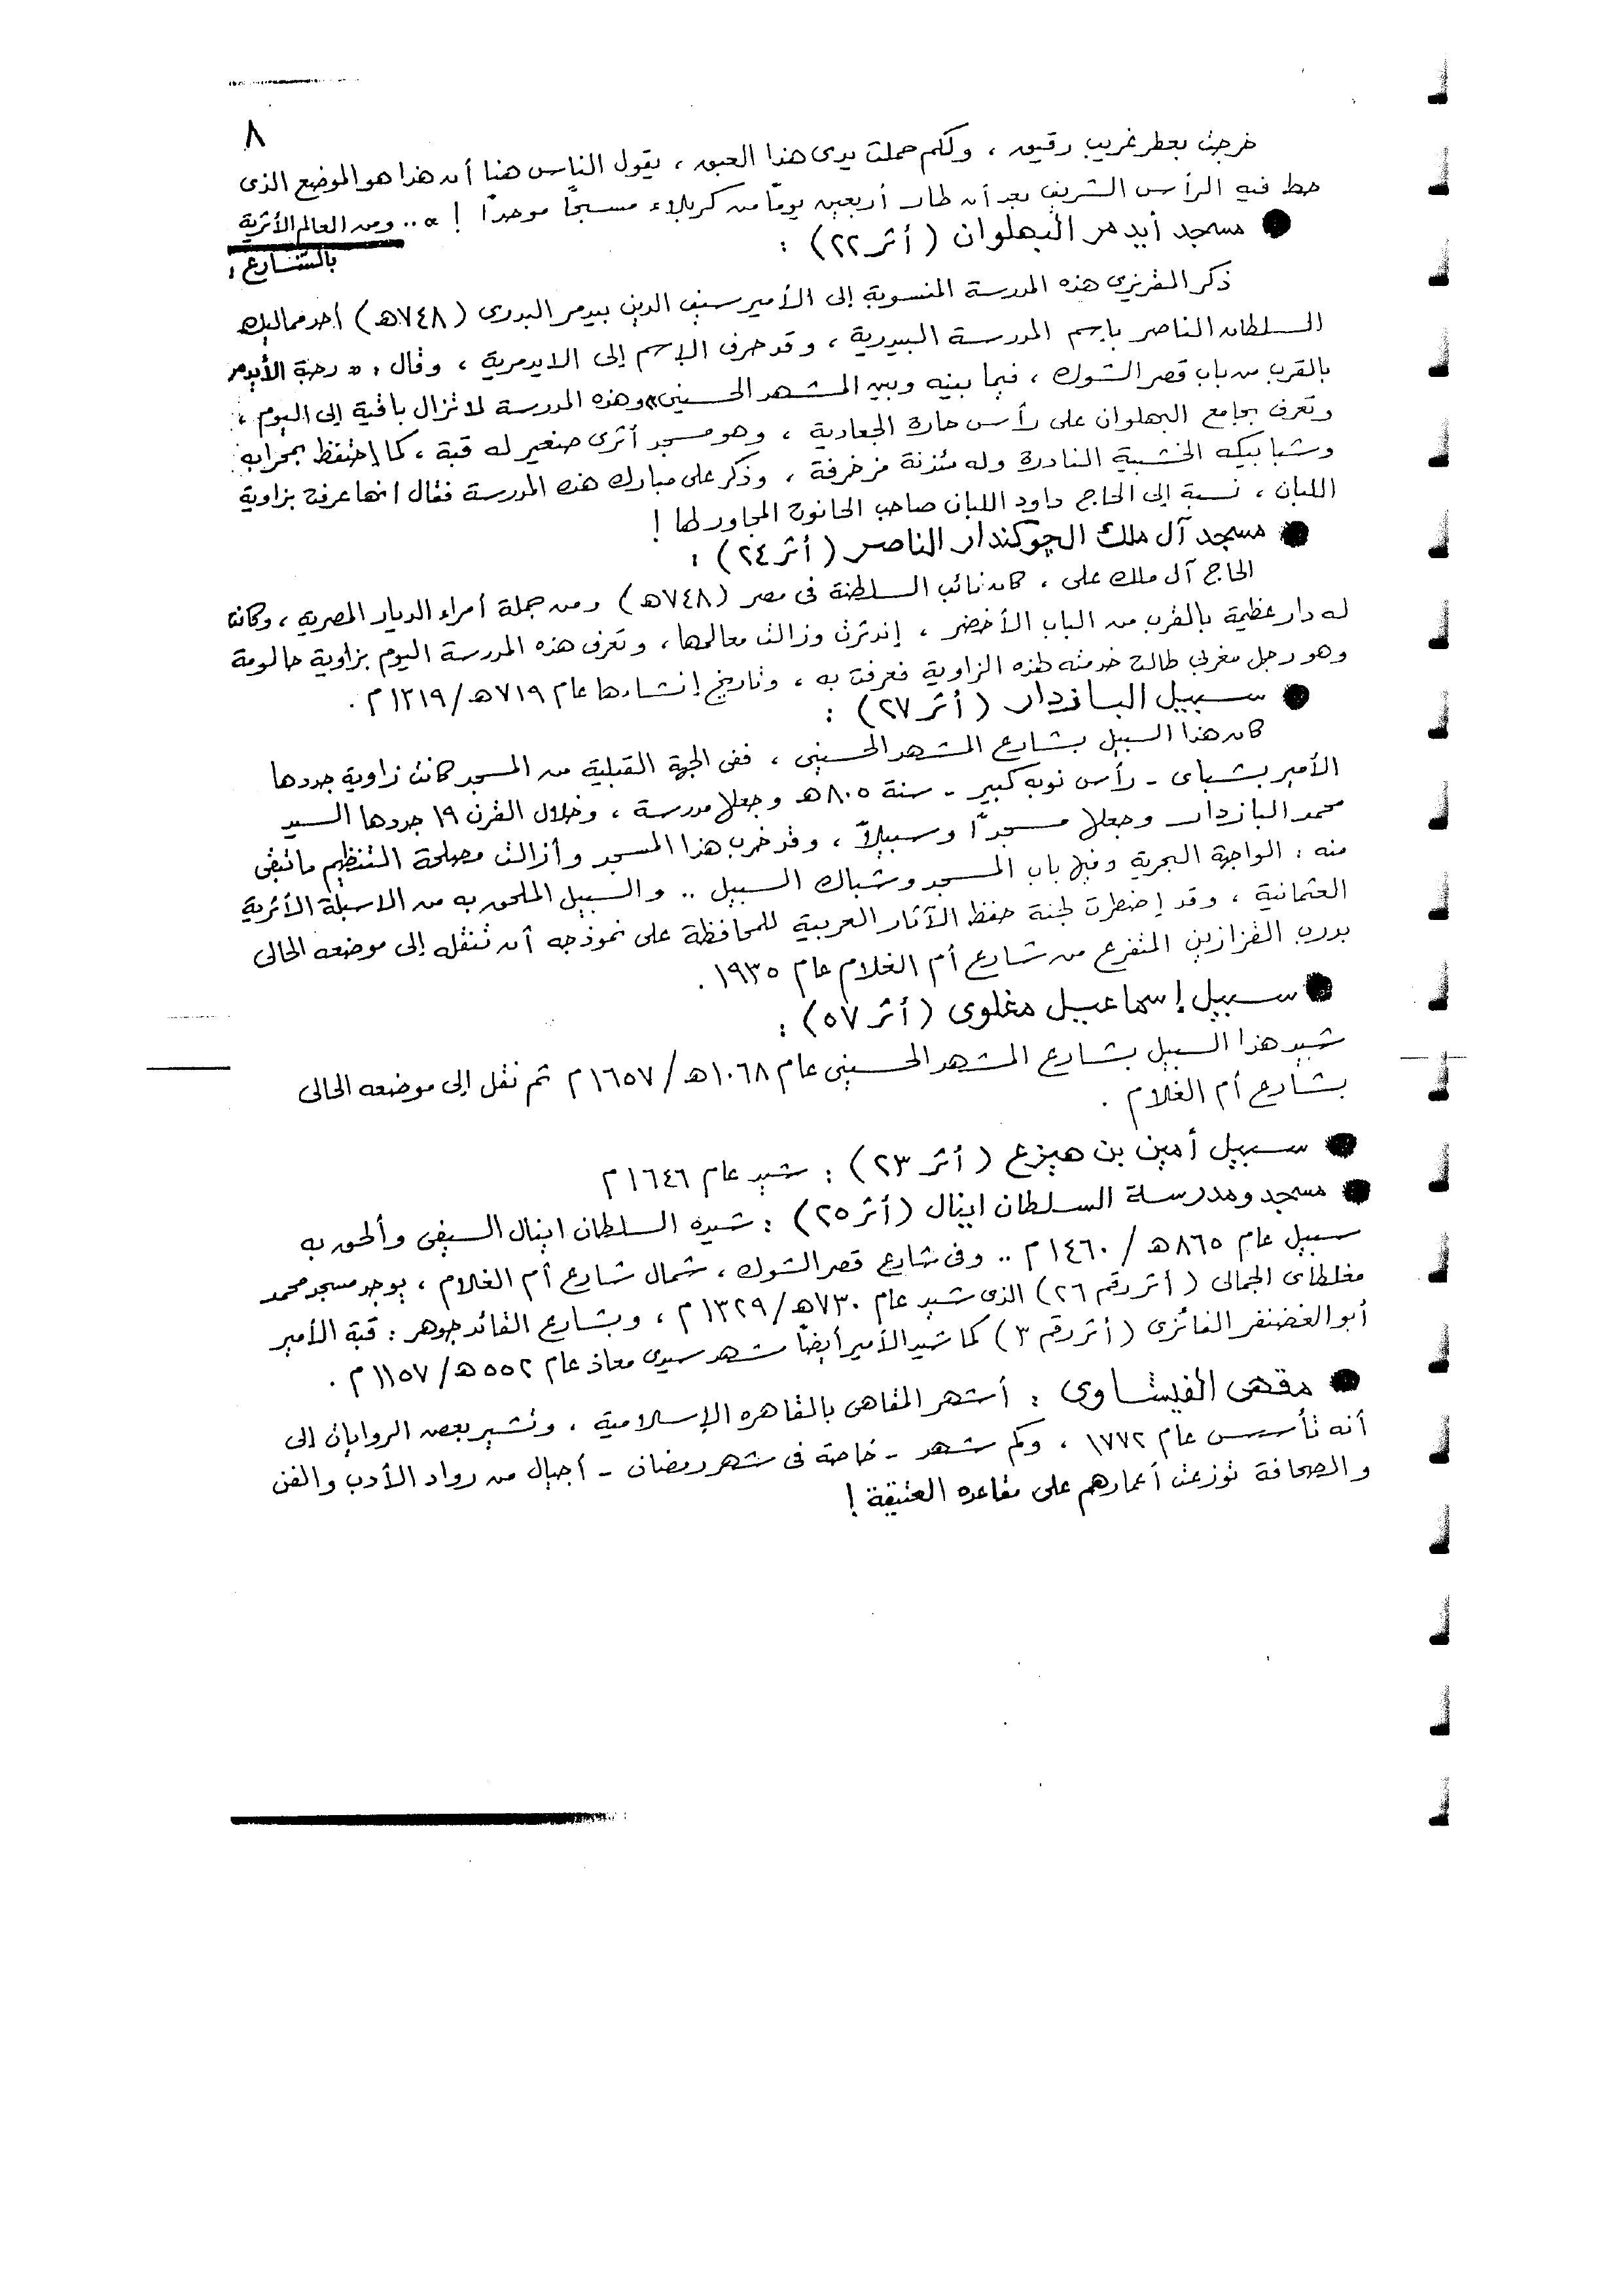 ٨
خرجت بعطر غريب رقيق ، ولكم حملت يدى هذا العبق ، يقول الناس هنا أن هذا هو الموضع الذى
حط فيه الرأس الشريف بعد أن طار أربعين يومًا من كربلاء مسبحًا موحدًا ! » .. ومن العالم الأثرية
بالشارع :
● مسجد أيدمر البهلوان ( أثر ٢٢ ) :
ذكر المقريزى هذه المدرسة المنسوبة إلى الأمير سيف الدين بيدمر البدرى ( ٧٤٨ه ) أحد مماليك
السلطان الناصر باسم المدرسة البيدرية ، وقد حرف الإسم إلى الايدمرية ، وقال : « رحبة الأيدمر
بالقرب من باب قصر الشوك ، فيما بينه وبين المشهد الحسينى » وهذه المدرسة لا تزال باقية إلى اليوم ،
وتعرف بجامع البهلوان على رأس حارة الجعادية ، وهو مسجد أثرى صغير له قبة ، كما إحتفظ بمحرابه
وشبابيكه الخشبية النادرة وله مئذنة مزخرفة ، وذكر على مبارك هذه المدرسة فقال انها عرفت بزاوية
اللبان ، نسبة إلى الحاج داود اللبان صاحب الحانوت المجاور لها !
● مسجد آل ملك الجوكندار الناصر ( أثر ٢٤ ) :
الحاج آل ملك على ، كان نائب السلطنة فى مصر ( ٧٤٨ه ) ومن جملة أمراء الديار المصرية ، وكانت
له دار عظيمة بالقرب من الباب الأخضر ، إندثرت وزالت معالمها ، وتعرف هذه المدرسة اليوم بزاوية حالومة
وهو رجل مغربى طالت خدمته لهذه الزاوية فعرفت به ، وتاريخ إنشاءها عام ٧١٩ه / ١٣١٩م .
● سبيل البازدار ( أثر ٢٧ ) :
كان هذا السبيل بشارع المشهد الحسينى ، ففى الجهة القبلية من المسجد كانت زاوية جددها
الأمير يشباى - رأس نوبه كبير - سنة ٨٠٥ه وجعلها مدرسة ، وخلال القرن ١٩ جددها السيد
محمد البازدار وجعلها مسجدًا وسبيلاً ، وقد خرب هذا المسجد وأزالت مصلحة التنظيم ما تبقى
منه : الواجهة البحرية وفيها باب المسجد وشباك السبيل .. والسبيل الملحق به من الاسبلة الأثرية
العثمانية ، وقد إضطرت لجنة حفظ الآثار العربية للمحافظة على نموذجه أن تنقله إلى موضعه الحالى
بدرب القزازين المتفرع من شارع أم الغلام عام ١٩٣٥ .
● سبيل إسماعيل مغلوى ( أثر ٥٧ ) :
شيد هذا السبيل بشارع المشهد الحسينى عام ١٠٦٨ه / ١٦٥٧م ثم نقل إلى موضعه الحالى
بشارع أم الغلام .
● سبيل أمين بن هيزع ( أثر ٢٣ ) : شيد عام ١٦٤٦م
● مسجد ومدرسة السلطان اينال ( أثر ٢٥ ) : شيده السلطان اينال السيفى وألحق به
سبيل عام ٨٦٥ه / ١٤٦٠م .. وفى شارع قصر الشوك ، شمال شارع أم الغلام ، يوجد مسجد محمد
مغلطاى الجمالى ( أثر رقم ٢٦ ) الذى شيد عام ٧٣٠ه / ١٣٢٩م ، وبشارع القائد جوهر : قبة الأمير
أبو الغضنفر الفائزى ( أثر رقم ٣ ) كما شيد الأمير أيضًا مشهد سيدى معاذ عام ٥٥٢ه / ١١٥٧م .
● مقهى الفيشاوى : أشهر المقاهى بالقاهره الإسلامية ، وتشير بعض الروايات إلى
أنه تأسس عام ١٧٧٢ ، وكم شهد - خاصة فى شهر رمضان - أجيال من رواد الأدب والفن
والصحافة توزعت أعمارهم على مقاعده العتيقة !